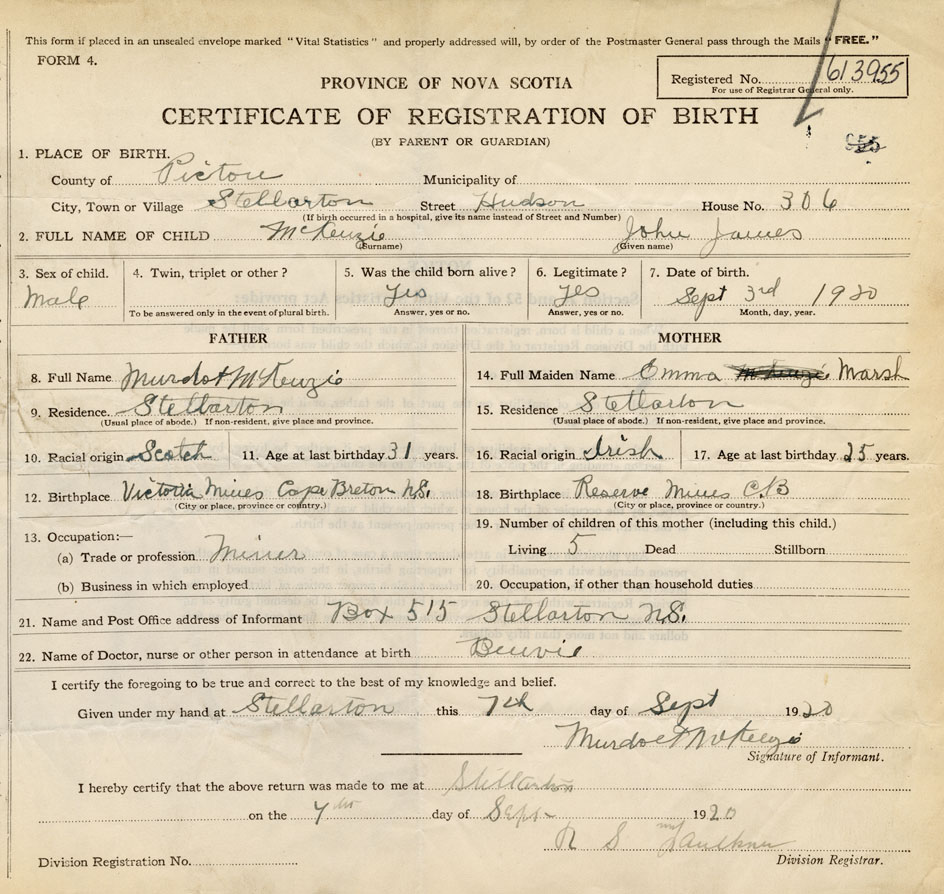 This form if placed in an unsealed envelope marked "Vital Statistics" and properly addressed will, by order of the Postmaster General pass through the Mails "FREE."
FORM 4.
Registered No. 613955
For use of Registrar General only.
PROVINCE OF NOVA SCOTIA
CERTIFICATE OF REGISTRATION OF BIRTH
(BY PARENT OR GUARDIAN)
1. PLACE OF BIRTH.
County of Pictou Municipality of
City, Town or Village Stellarton Street Hudson House No. 306
(If birth occurred in a hospital, give its name instead of Street and Number)
2. FULL NAME OF CHILD McKenzie John James
(Surname) (Given name)
3. Sex of child. 4. Twin, triplet or other? 5. Was the child born alive? 6. Legitimate? 7. Date of birth.
Male Yes Yes Sept 3rd 1920
To be answered only in the event of plural birth. Answer, yes or no. Answer, yes or no. Month, day, year.
FATHER
8. Full Name McKenzie
9. Residence. Stellarton
(Usual place of abode.) If non-resident, give place and province.
10. Racial origin Scotch 11. Age at last birthday 31 years.
12. Birthplace Victoria Mines Cape Breton N.S.
(City or place, province or country.)
13. Occupation:—
(a) Trade or profession Miner
(b) Business in which employed
MOTHER
14. Full Maiden Name Emma McKenzie Marsh
15. Residence Stellarton
(Usual place of abode.) If non-resident, give place and province.
16. Racial origin Irish 17. Age at last birthday 25 years.
18. Birthplace Reserve Mines C.B
(City or place, province or country.)
19. Number of children of this mother (including this child.)
Living 5 Dead Stillborn
20. Occupation, if other than household duties
21. Name and Post Office address of Informant Box 515 Stellarton N.S.
22. Name of Doctor, nurse or other person in attendance at birth
I certify the foregoing to be true and correct to the best of my knowledge and belief.
Given under my hand at Stellarton this 7th day of Sept 1920
McKenzie
Signature of Informant.
I hereby certify that the above return was made to me at Stellarton
on the 7th day of Sept- 1920
R S Faulkner
Division Registration No. Division Registrar.